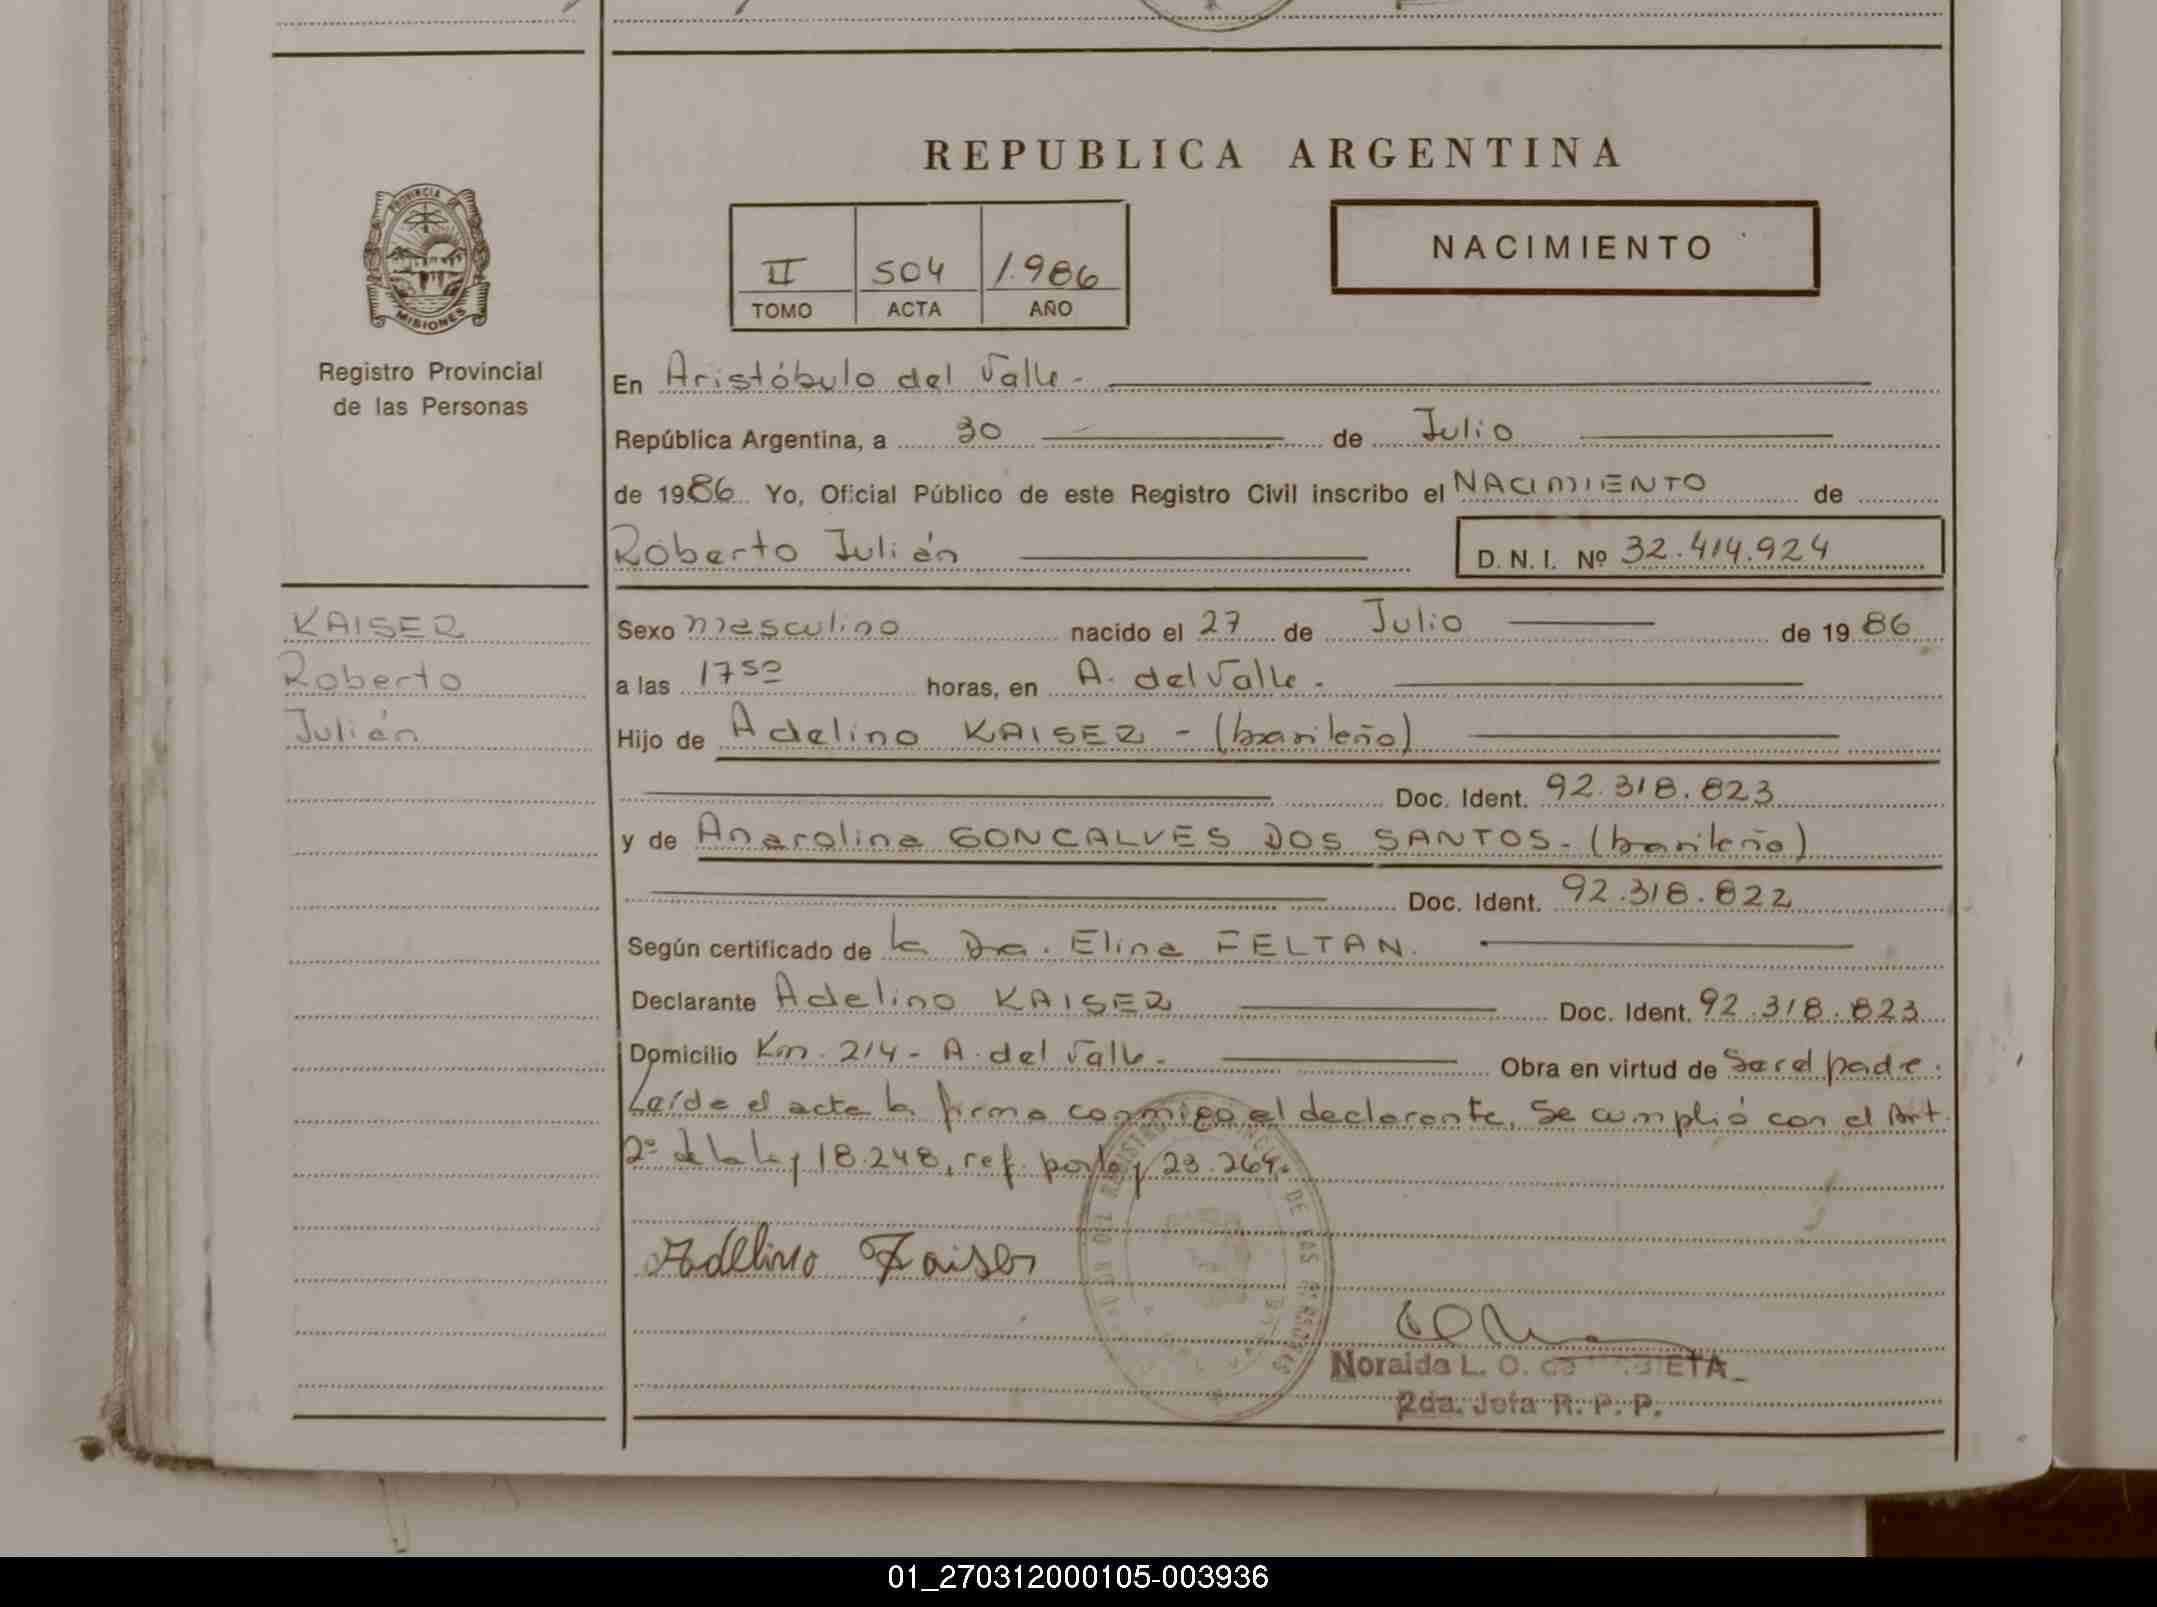 REPUBLICA ARGENTINA
PROVINCIA DE
MISIONES
Registro Provincial
de las Personas
II 504 1.986
TOMO ACTA AÑO
NACIMIENTO
En Aristóbulo del Valle.-
República Argentina, a 30 de Julio
de 1986 Yo, Oficial Público de este Registro Civil inscribo el NACIMIENTO de
Roberto Julián D. N. I. Nº 32.414.924
KAISER
Roberto
Julián
Sexo masculino nacido el 27 de Julio de 19 86
a las 17 50 horas, en A. del Valle.-
Hijo de Adelino KAISER - (brasileño)
Doc. Ident. 92.318.823
y de Anarolina GONCALVES DOS SANTOS.- (brasileño)
Doc. Ident. 92.318.822
Según certificado de la Dra. Elina FELTAN.
Declarante Adelino KAISER Doc. Ident. 92.318.823
Domicilio Km. 214 - A. del Valle.- Obra en virtud de Ser el padre.
Leída el acta la firma conmigo el declarante, Se cumplió con el Art.
2º de la ley 18.248, ref. por ley 23.264.
Adelino Kaiser
Noraida L. O. de
2da. Jefa R. P. P.
01_270312000105-003936